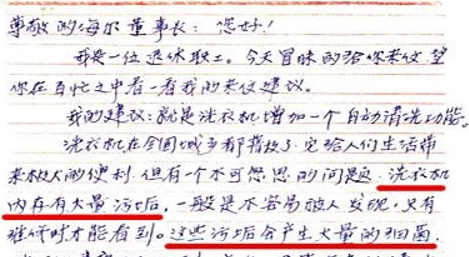 尊敬的海尔董事长：您好！
我是一位退休职工。今天冒昧的给你来信望
你在百忙之中看一看我的来信建议。
我的建议：就是洗衣机增加一个自动清洗功能。
洗衣机在全国城乡都普及了，它给人们生活带
来极大的便利，但有一个不可忽思的问题，洗衣机
内存有大量污垢后，一般是不容易被人发现，只有
维修时才能看到。这些污垢会产生大量的细菌，